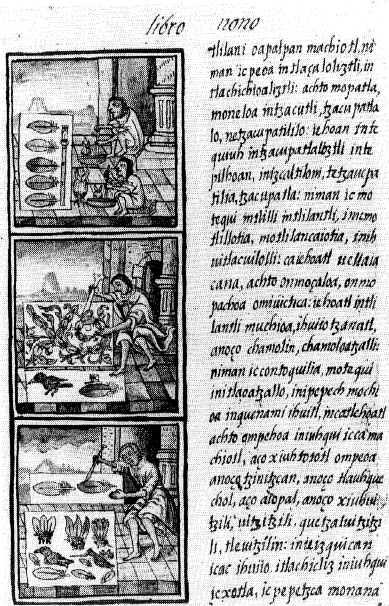 libro nono
tlilani oapalpan machiotl, ni
man ic peoa in tlaçaloliztli, in
tlachichioaliztli: achto mopatla,
moneloa intzacutli, tzacupatla
lo, netzacupatililo: iehoan inte
quiuh in tzacupatlaliztli inte
pilhoan, in tzcaltiloni, tetzacupa
tilia, tzacupatla: niman ic mo
tequi in tlilli in tlilantli, inic mo
tlillotia, motlilancaiotia, inih
cuitlacuilolli: ca iehoatl
iacana, achto onmoçaloa, onmo
pachoa omiuictica: iehoatl in tli
lantli muchioa, ihuitotzanatl,
anoço chamolin, chamoloatzalli:
niman ic contoquilia, motequi
initlaoatzallo, inipepech mochi
oa in quenami ihuitl, in catlehoatl
achto ompehoa iniuhqui icca ma
chiotl, aço xiuhtototl ompeoa
anoce tzinitzcan, anoço tlauhque
chol, aço alopal, anoço xiuhui
tzili, uitzitzili, quetzaluitzitzi
li, tleuitzilin: inizquican
icac ihuiio. itlachieliz iniuhqui
ic xotla, ic pepetzca monana